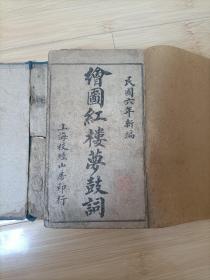 民國六年新編
繪圖紅樓夢鼓詞
上海校經山房印行